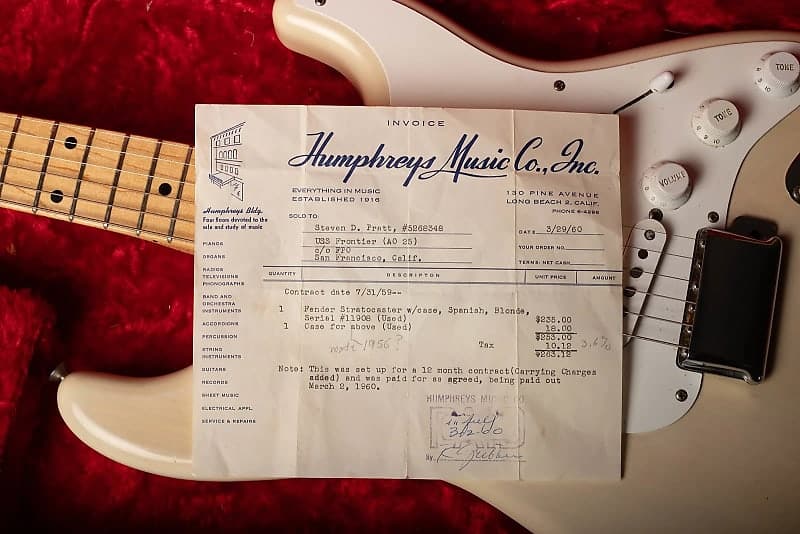 INVOICE
Humphreys Music Co., Inc.
EVERYTHING IN MUSIC
ESTABLISHED 1916
130 PINE AVENUE
LONG BEACH 2, CALIF.
PHONE 6-4286
Humphreys Bldg.
Four floors devoted to the
sale and study of music
PIANOS
ORGANS
RADIOS
TELEVISIONS
PHONOGRAPHS
BAND AND
ORCHESTRA
INSTRUMENTS
ACCORDIONS
PERCUSSION
STRING
INSTRUMENTS
GUITARS
RECORDS
SHEET MUSIC
ELECTRICAL APPL.
SERVICE & REPAIRS
SOLD TO
Steven D. Pratt, #5268348
USS Frontier (AO 25)
c/o FPO
San Francisco, Calif.
DATE 3/29/60
YOUR ORDER NO.
TERMS: NET CASH
QUANTITY DESCRIPTON UNIT PRICE AMOUNT
Contract date 7/31/59--
1 Fender Stratocaster w/case, Spanish, Blonde,
Serial #11908 (Used) $235.00
1 Case for above (Used) 18.00
$253.00
Tax 10.12 3.6%
$263.12
note 1956?
Note: This was set up for a 12 month contract(Carrying Charges
added) and was paid for as agreed, being paid out
March 2, 1960.
HUMPHREYS MUSIC CO.
in full
3-2-60
By
TONE
TONE
VOLUME